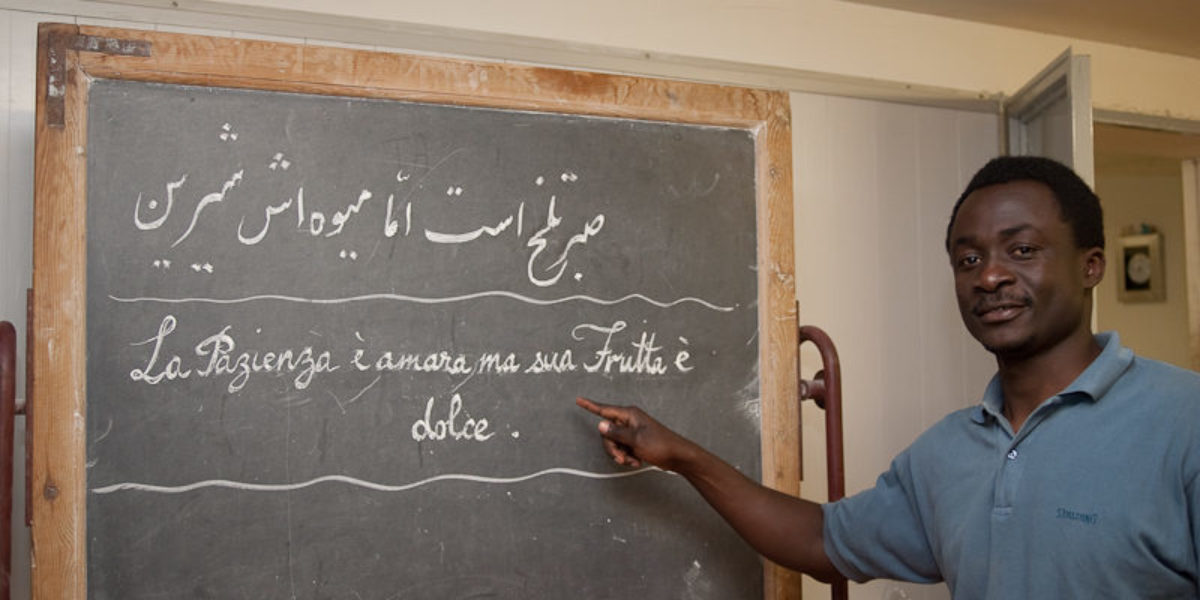 صبر تلخ است امّا میوه‌اش شیرین
La Pazienza è amara ma sua Frutta è
dolce.